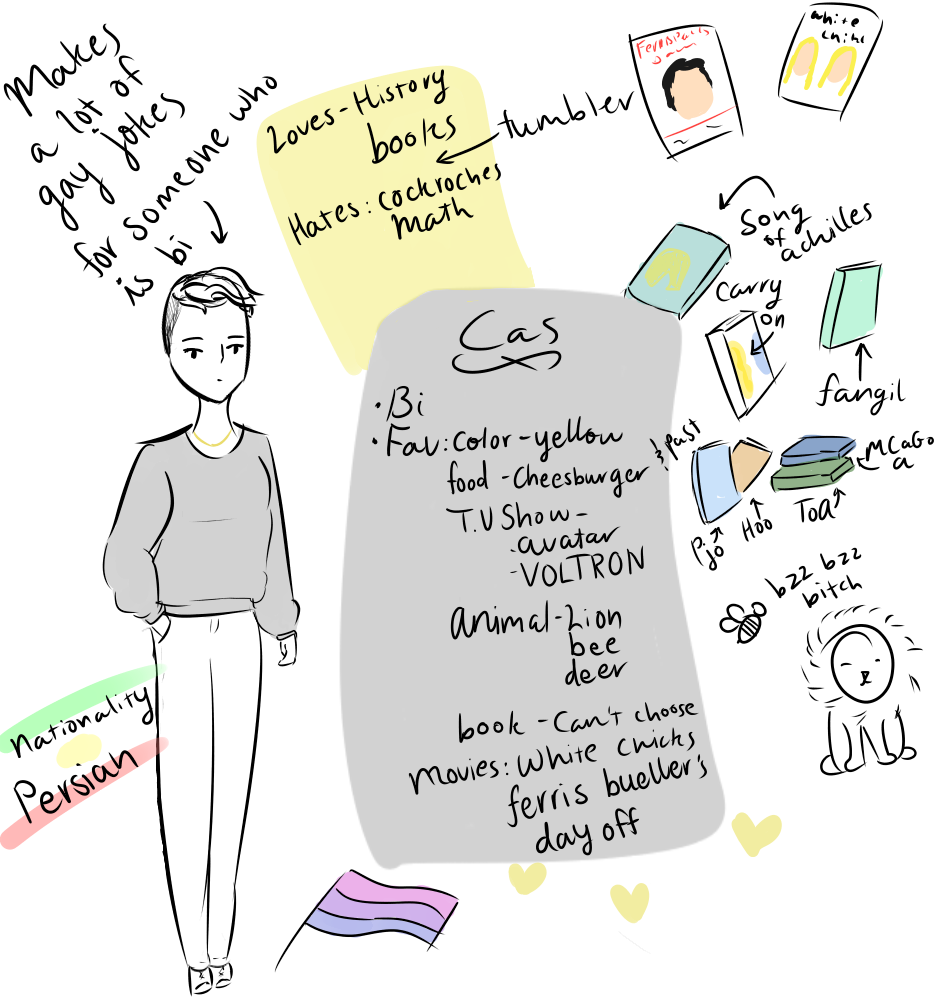 Makes
a lot of
gay jokes
for someone who
is bi
Loves-History
books
Hates: cockroches
math
tumbler
white
chic
Song
of
achilles
Carry
on
fangil
Cas
• Bi
• Fav: color-yellow
food - Cheesburger
T.V Show-
• avatar
- VOLTRON
animal-Lion
bee
deer
book - Can't choose
Movies: White Chicks
ferris bueller's
day off
& past
P.
Jo
Hoo
Toa
MCaGo
a
bzz bzz
bitch
Nationality
Persian